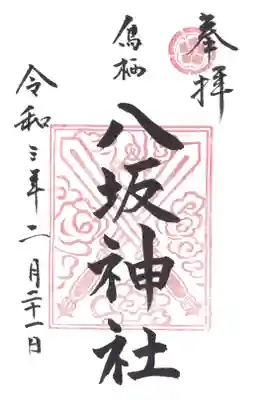 奉拝
鳥栖
八坂神社
令和三年二月二十一日